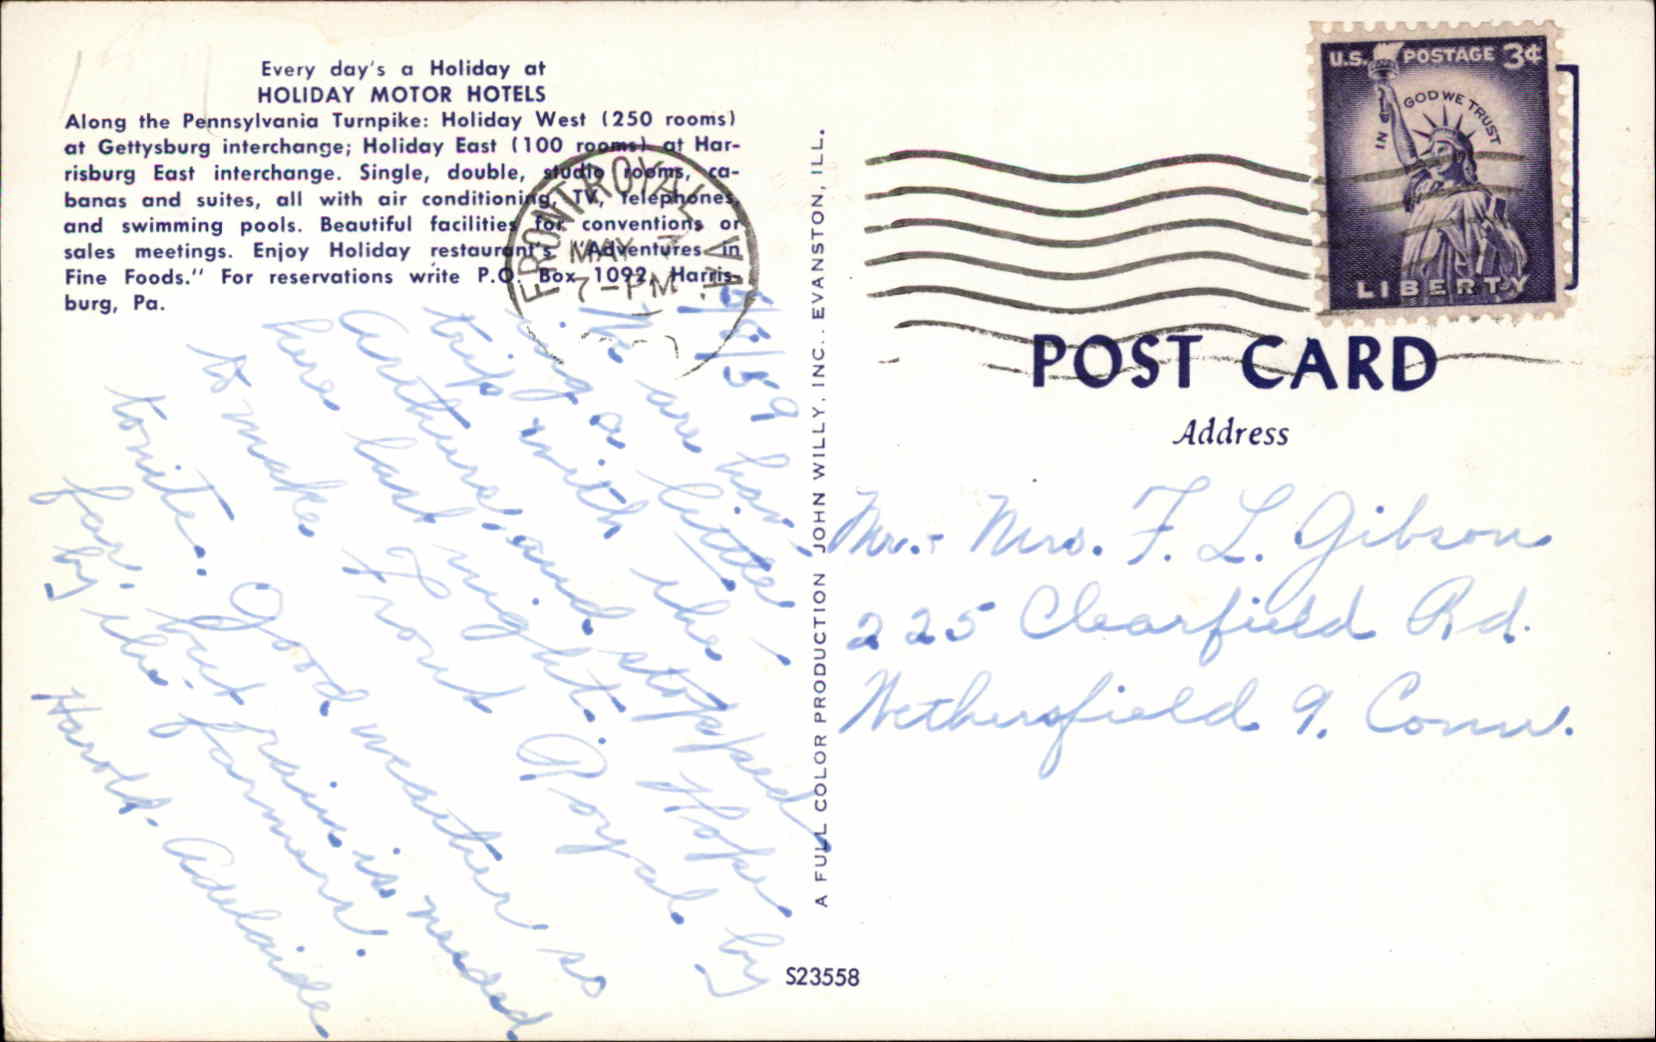 Every day's a Holiday at
HOLIDAY MOTOR HOTELS
Along the Pennsylvania Turnpike: Holiday West (250 rooms)
at Gettysburg interchange; Holiday East (100 rooms) at Har-
risburg East interchange. Single, double, studio rooms, ca-
banas and suites, all with air conditioning, TV, Telephones,
and swimming pools. Beautiful facilities for conventions or
sales meetings. Enjoy Holiday restaurant's "Adventures in
Fine Foods." For reservations write P.O. Box 1092, Harris-
burg, Pa.
FRONT ROYAL
MAY
7-PM
VA.
5/5/59
We are hav-
ing a little
trip with the
Arthurs, and stopped
here last night. Hope
to make Front Royal by
tonite. Good weather so
far, but rain is needed
by the farmers.
Harold - Adelaide
A FULL COLOR PRODUCTION JOHN WILLY, INC., EVANSTON, ILL.
S23558
U.S. POSTAGE 3¢
IN GOD WE TRUST
LIBERTY
POST CARD
Address
Mr. - Mrs. F. L. Gibson
225 Clearfield Rd.
Wethersfield 9, Conn.